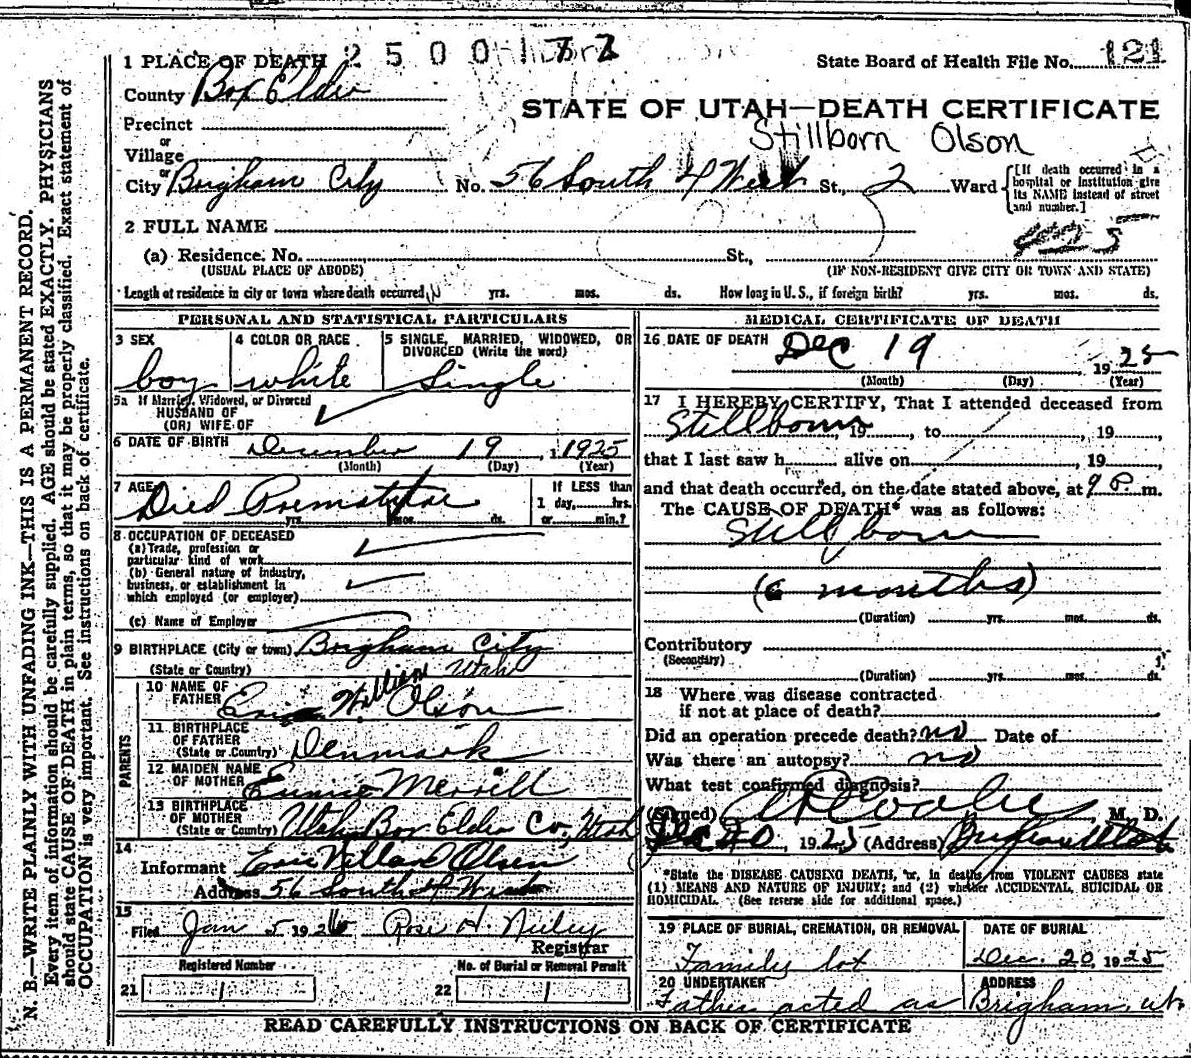 1 PLACE OF DEATH 2 5 0 0 1 7 7
State Board of Health File No. 121
County Box Elder
STATE OF UTAH—DEATH CERTIFICATE
Precinct
Stillborn Olson
or
Village
or
City Brigham City No. 56 South 4 West St., 2 Ward
[If death occurred in a
hospital or institution give
its NAME instead of street
and number.]
2 FULL NAME
(a) Residence. No. St.,
(USUAL PLACE OF ABODE) (IF NON-RESIDENT GIVE CITY OR TOWN AND STATE)
Length of residence in city or town where death occurred yrs. mos. ds. How long in U. S., if foreign birth? yrs. mos. ds.
PERSONAL AND STATISTICAL PARTICULARS
3 SEX 4 COLOR OR RACE 5 SINGLE, MARRIED, WIDOWED, OR
DIVORCED (Write the word)
boy white Single
5a If Married, Widowed, or Divorced
HUSBAND OF
(OR) WIFE OF
6 DATE OF BIRTH December 19, 1925
(Month) (Day) (Year)
7 AGE Died Premature
If LESS than
1 day, hrs.
yrs. mos. ds. or min.?
8 OCCUPATION OF DECEASED
(a) Trade, profession or
particular kind of work
(b) General nature of industry,
business, or establishment in
which employed (or employer)
(c) Name of Employer
9 BIRTHPLACE (City or town) Brigham City
(State or Country) Utah
PARENTS
10 NAME OF
FATHER Eric William Olson
11 BIRTHPLACE
OF FATHER
(State or Country) Denmark
12 MAIDEN NAME
OF MOTHER Eunice Merrill
13 BIRTHPLACE
OF MOTHER
(State or Country) Utah Box Elder Co, Utah
14
Informant Eric Olsen
Address 56 South 4 West
15
Filed Jan 5, 1926 Rose H. Neeley
Registrar
Registered Number No. of Burial or Removal Permit
21 22
MEDICAL CERTIFICATE OF DEATH
16 DATE OF DEATH Dec 19 1925
(Month) (Day) (Year)
17 I HEREBY CERTIFY, That I attended deceased from
Stillborn, 19, to, 19,
that I last saw h alive on, 19,
and that death occurred, on the date stated above, at 9 P. m.
The CAUSE OF DEATH* was as follows:
Stillborn
(6 months)
(Duration) yrs. mos. ds.
Contributory
(Secondary)
(Duration) yrs. mos. ds.
18 Where was disease contracted
if not at place of death?
Did an operation precede death? no Date of
Was there an autopsy? no
What test confirmed diagnosis?
(Signed) M. D.
Dec 20, 1925 (Address) Brigham Utah
*State the DISEASE CAUSING DEATH, or, in deaths from VIOLENT CAUSES state
(1) MEANS AND NATURE OF INJURY; and (2) whether ACCIDENTAL, SUICIDAL OR
HOMICIDAL. (See reverse side for additional space.)
19 PLACE OF BURIAL, CREMATION, OR REMOVAL DATE OF BURIAL
Family lot Dec. 20, 1925
20 UNDERTAKER ADDRESS
Father acted as Brigham, Ut.
READ CAREFULLY INSTRUCTIONS ON BACK OF CERTIFICATE
N. B.—WRITE PLAINLY WITH UNFADING INK—THIS IS A PERMANENT RECORD.
Every item of information should be carefully supplied. AGE should be stated EXACTLY. PHYSICIANS
should state CAUSE OF DEATH in plain terms, so that it may be properly classified. Exact statement of
OCCUPATION is very important. See instructions on back of certificate.